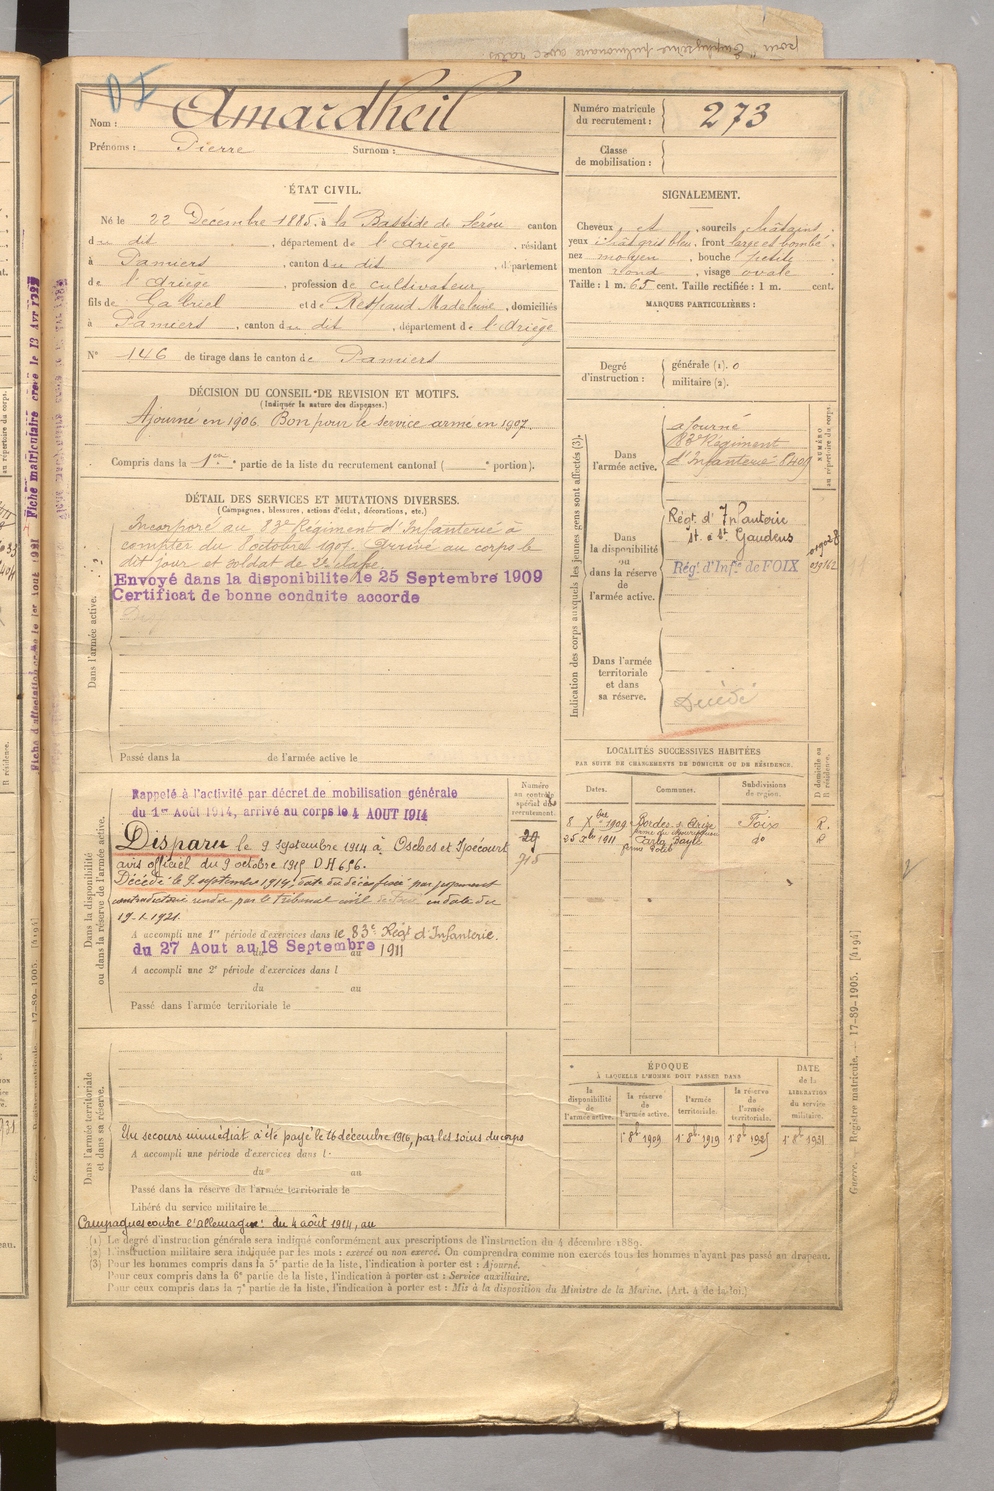 pour Emphysème pulmonaire avec rales.
Nom : Amardheil
Prénoms : Pierre Surnom :
Numéro matricule du recrutement : 273
Classe de mobilisation :
ÉTAT CIVIL.
Né le 22 Décembre 1885, à la Bastide de Sérou canton
du dit , département de l'Ariège , résidant
à Pamiers , canton du dit , département
de l'Ariège , profession de cultivateur
fils de Gabriel et de Respaud Madeleine , domiciliés
à Pamiers , canton du dit , département de l'Ariège
N° 146 de tirage dans le canton de Pamiers
SIGNALEMENT.
Cheveux et , sourcils châtains,
yeux chât gris bleu , front large et bombé ,
nez moyen , bouche petite ,
menton rond , visage ovale
Taille : 1 m. 65 cent. Taille rectifiée : 1 m. cent.
MARQUES PARTICULIÈRES :
Degré d'instruction :
générale (1). 0
militaire (2).
DÉCISION DU CONSEIL DE REVISION ET MOTIFS.
(Indiquer la nature des dispenses.)
Ajourné en 1906. Bon pour le service armé en 1907.
Compris dans la 1ère partie de la liste du recrutement cantonal ( e portion).
DÉTAIL DES SERVICES ET MUTATIONS DIVERSES.
(Campagnes, blessures, actions d'éclat, décorations, etc.)
Dans l'armée active.
Incorporé au 83e Régiment d'Infanterie à
compter du 8 octobre 1907. Arrivé au corps le
dit jour et soldat de 2e classe.
Envoyé dans la disponibilité le 25 Septembre 1909
Certificat de bonne conduite accorde
Passé dans la de l'armée active le
Indication des corps auxquels les jeunes gens sont affectés (3).
NUMÉRO au répertoire du corps.
Dans l'armée active.
ajourné
83e Régiment
d'Infanterie 8409
Dans la disponibilité ou dans la réserve de l'armée active.
Régt. d'Infanterie
St. à St Gaudens
Régt d'Infie de FOIX
Dans l'armée territoriale et dans sa réserve.
Décédé
LOCALITÉS SUCCESSIVES HABITÉES
PAR SUITE DE CHANGEMENTS DE DOMICILE OU DE RÉSIDENCE.
Dates. Communes. Subdivisions de région. D domicile ou R résidence.
8 Xbre 1909 Bordes s. Arize Foix R.
25 Xbre 1911 Carla Bayle do R
Dans la disponibilité ou dans la réserve de l'armée active.
Numéro au contrôle spécial du recrutement.
29
Rappelé à l'activité par décret de mobilisation générale
du 1er Août 1914, arrivé au corps le 4 AOUT 1914
Disparu le 9 septembre 1914 à Osches et Ipécourt
avis officiel du 9 octobre 1915 DA 656.
Décédé le 9 septembre 1914, date du décès fixée par jugement
rendu par le tribunal civil de Foix en date du
19.1.1921.
A accompli une 1re période d'exercices dans le 83e Régt d'Infanterie.
du 27 Aout au 18 Septembre 1911
A accompli une 2e période d'exercices dans l
du au
Passé dans l'armée territoriale le
Dans l'armée territoriale et dans sa réserve.
Un secours immédiat a été payé le 16 décembre 1916, par les soins du corps
A accompli une période d'exercices dans l
du au
Passé dans la réserve de l'armée territoriale le
Libéré du service militaire le
Campagnes contre l'Allemagne : du 4 août 1914, au
ÉPOQUE
À LAQUELLE L'HOMME DOIT PASSER DANS
la disponibilité de l'armée active. la réserve de l'armée active. l'armée territoriale. la réserve de l'armée territoriale. DATE de la LIBÉRATION du service militaire.
1er 8bre 1909 1er 8bre 1919 1er 8bre 1925 1er 8bre 1931
(1) Le degré d'instruction générale sera indiqué conformément aux prescriptions de l'instruction du 4 décembre 1889.
(2) L'instruction militaire sera indiquée par les mots : exercé ou non exercé. On comprendra comme non exercés tous les hommes n'ayant pas passé au drapeau.
(3) Pour les hommes compris dans la 5e partie de la liste, l'indication à porter est : Ajourné.
Pour ceux compris dans la 6e partie de la liste, l'indication à porter est : Service auxiliaire.
Pour ceux compris dans la 7e partie de la liste, l'indication à porter est : Mis à la disposition du Ministre de la Marine. (Art. 4 de la loi.)
Guerre. — Registre matricule. — 17-89-1905. [4194]